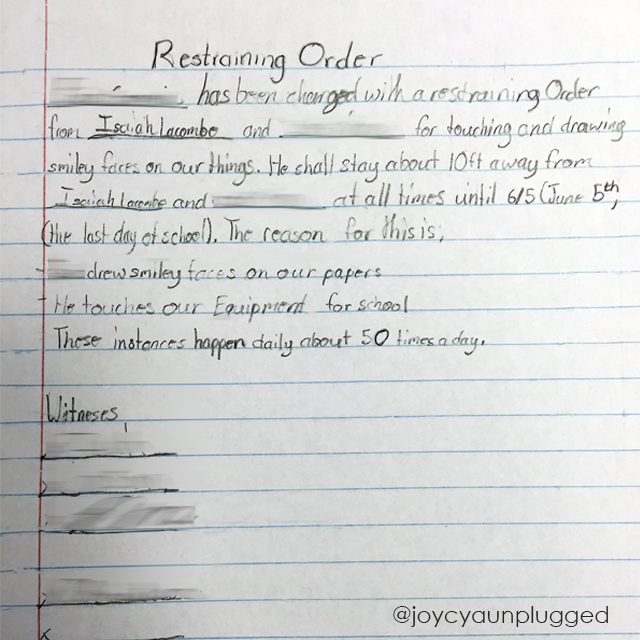 Restraining Order
has been charged with a restraining Order
from Isaiah Lacombe and for touching and drawing
smiley faces on our things. He shall stay about 10ft away from
Isaiah Lacombe and at all times until 6/5 (June 5th,
(the last day of school). The reason for this is,
- drew smiley faces on our papers
- He touches our Equipment for school
These instances happen daily about 50 times a day.
Witneses,
@joycyaunplugged